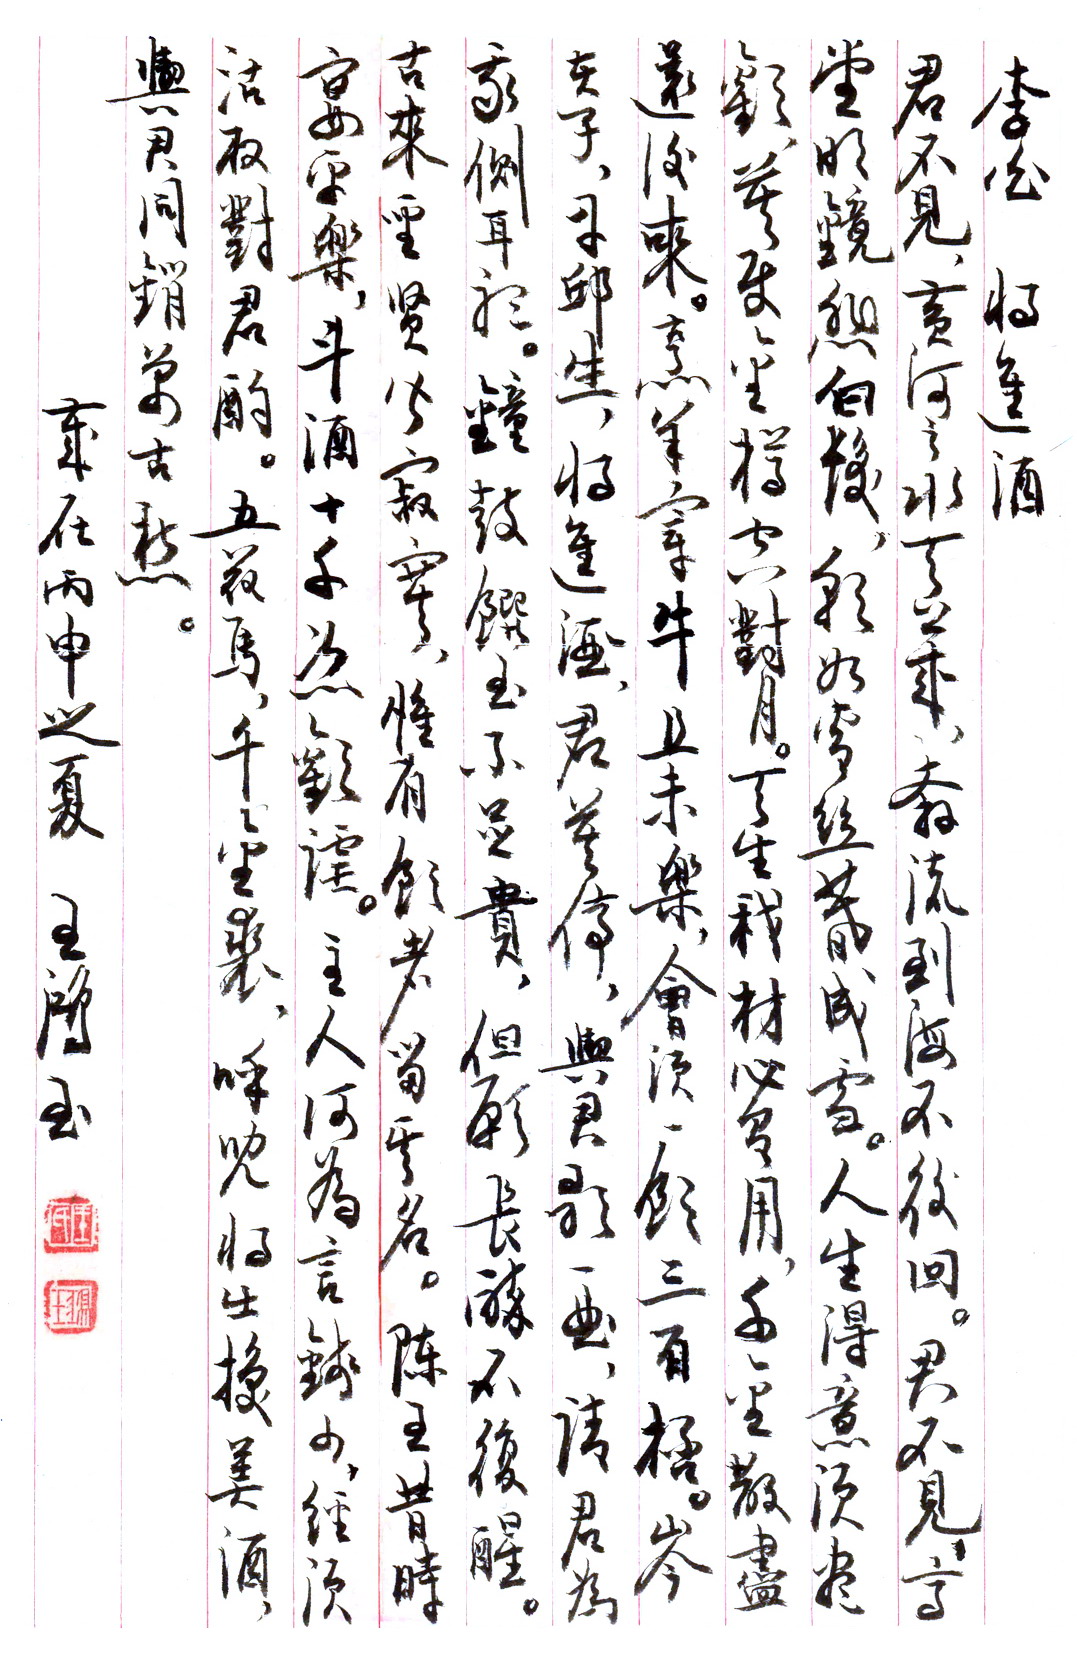 李白 將進酒
君不見，黃河之水天上來，奔流到海不復回。君不見，高
堂明鏡悲白髮，朝如青絲暮成雪。人生得意須盡
歡，莫使金樽空對月。天生我材必有用，千金散盡
還復來。烹羊宰牛且未樂，會須一飲三百杯。岑
夫子，丹邱生，將進酒，君莫停，與君歌一曲，請君為
我側耳聽。鐘鼓饌玉不足貴，但願長醉不復醒。
古來聖賢皆寂寞，惟有飲者留其名。陳王昔時
宴平樂，斗酒十千恣歡謔。主人何為言錢少，徑須
沽取對君酌。五花馬，千金裘，呼兒將出換美酒，
與君同銷萬古愁。
歲在丙申之夏 王鴻玉